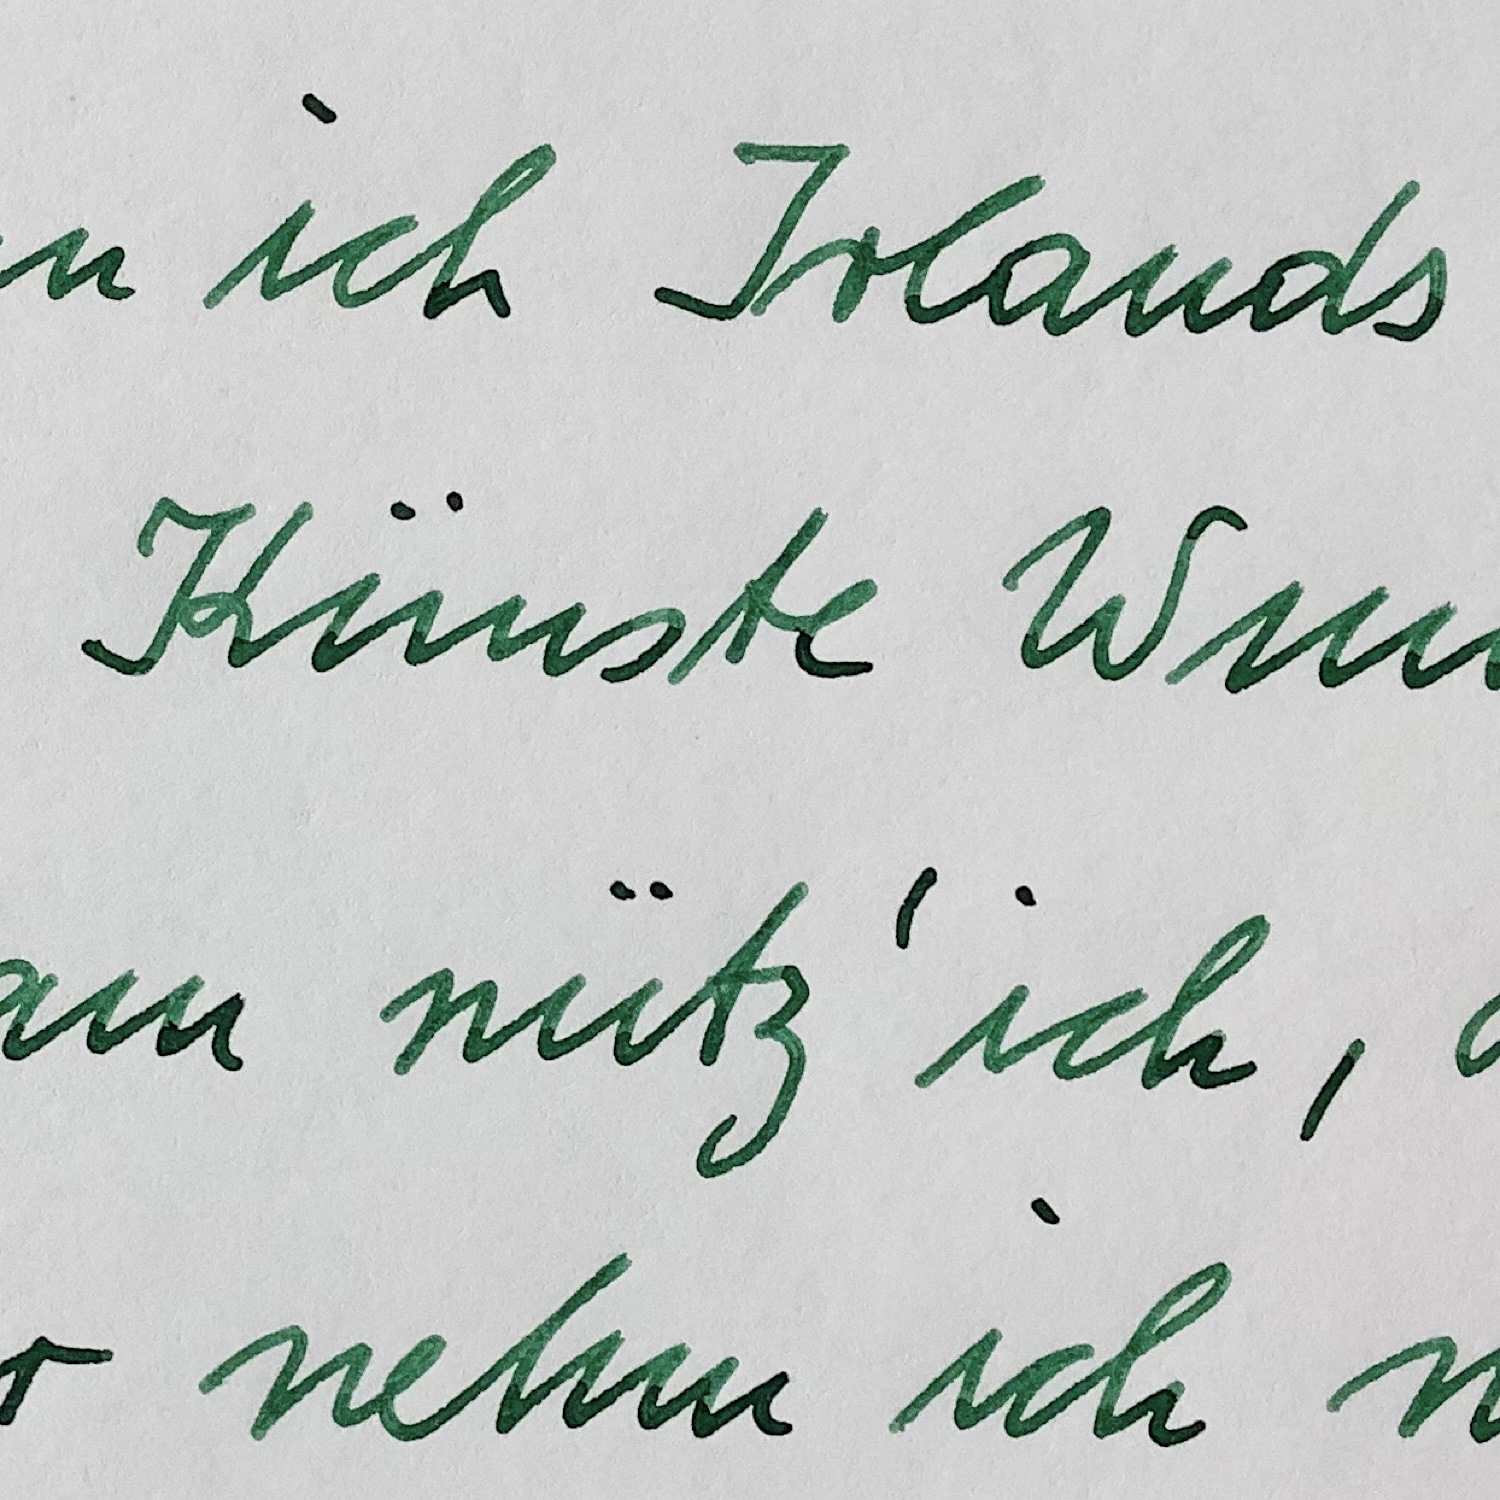 ich Irlands
Künste
nütz' ich,
nehm ich